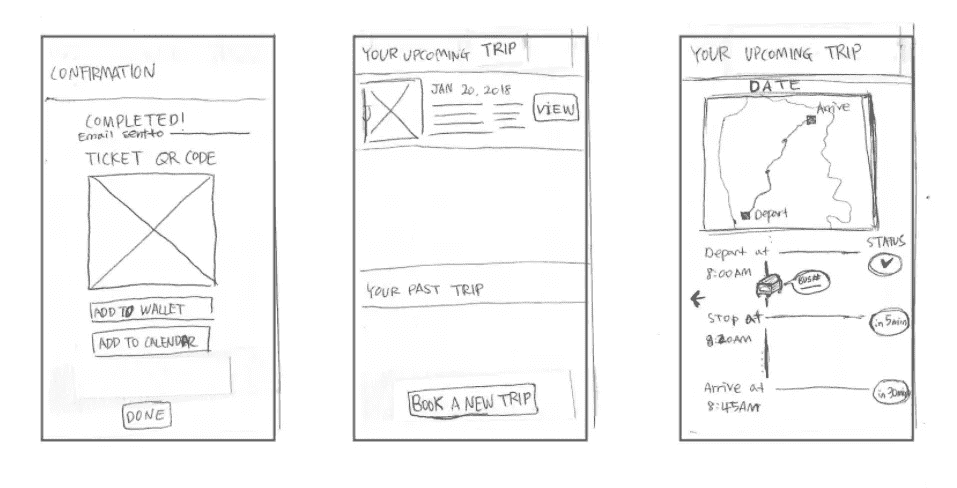 CONFIRMATION
COMPLETED!
Email sent to
TICKET QR CODE
ADD TO WALLET
ADD TO CALENDAR
DONE
YOUR UPCOMING TRIP
JAN 20, 2018
VIEW
YOUR PAST TRIP
BOOK A NEW TRIP
YOUR UPCOMING TRIP
DATE
Arrive
Depart
STATUS
Depart at
8:00AM
BUS#
Stop at
8:20AM
in 5min
Arrive at
8:45AM
in 30min